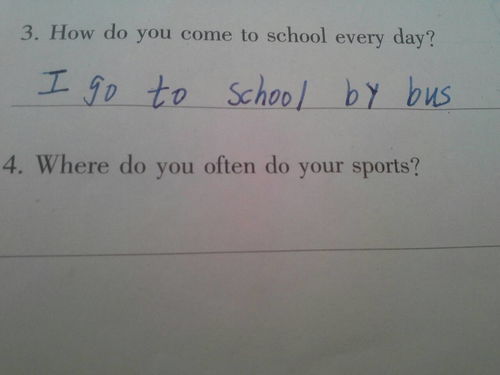 3. How do you come to school every day?
I go to school by bus
4. Where do you often do your sports?